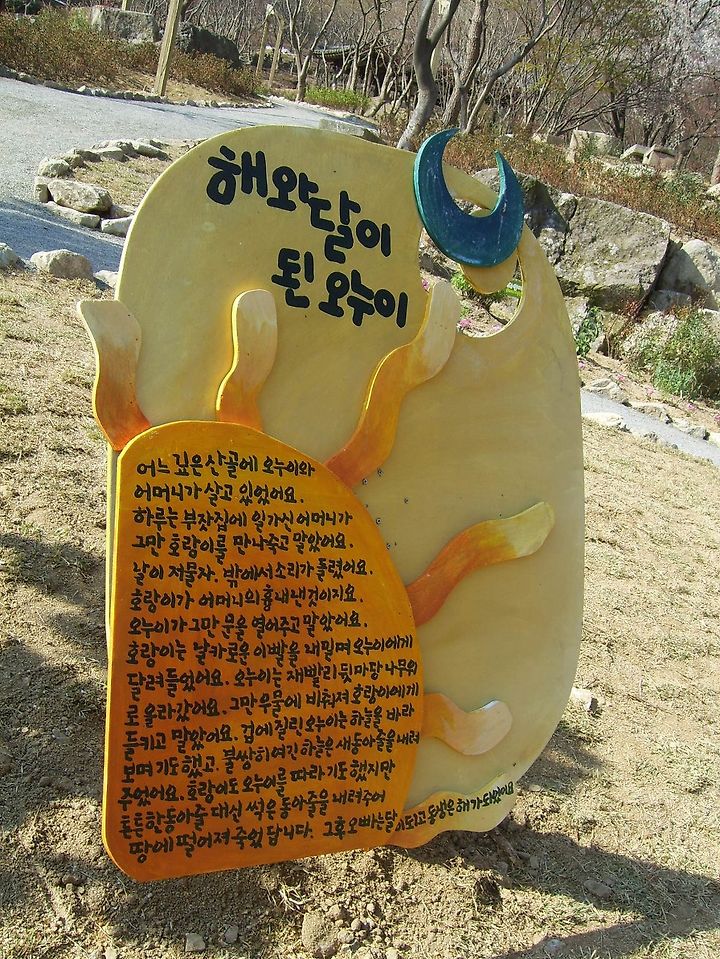 해와달이
된 오누이
어느 깊은 산골에 오누이와
어머니가 살고 있었어요.
하루는 부잣집에 일가신 어머니가
그만 호랑이를 만나죽고 말았어요.
날이 저물자. 밖에서 소리가 들렸어요.
호랑이가 어머니의 흉내낸것이지요.
오누이가 그만 문을 열어주고 말았어요.
호랑이는 날카로운 이빨을 내밀며 오누이에게
달려들었어요. 오누이는 재빨리 뒷마당 나무위
로 올라갔어요. 그만 우물에 비춰져 호랑이에게
들키고 말았어요. 겁에 질린 오누이는 하늘을 바라
보며 기도했고. 불쌍히 여긴 하늘은 새동아줄을 내려
주었어요. 호랑이도 오누이를 따라 기도 했지만
튼튼한동아줄 대신 썩은 동아줄을 내려주어
땅에 떨어져 죽었 답니다. 그후 오빠는달이되고 동생은 해가 되었어요